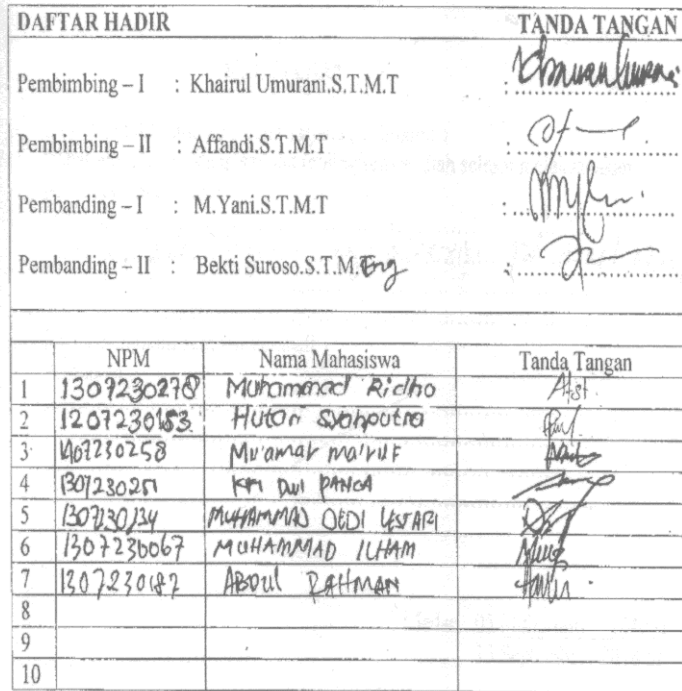 DAFTAR HADIR TANDA TANGAN
Pembimbing – I : Khairul Umurani.S.T.M.T :
Pembimbing – II : Affandi.S.T.M.T :
Pembanding – I : M.Yani.S.T.M.T :
Pembanding – II : Bekti Suroso.S.T.M.Eng :
NPM Nama Mahasiswa Tanda Tangan
1 1307230278 Muhammad Ridho
2 1207230153 Hutari Syahputra
3 1407230258 Mu'amar ma'ruf
4 1307230251 Dwi PANCA
5 1307230134 MUHAMMAD DEDI LESTARI
6 1307230067 MUHAMMAD ILHAM
7 1307230182 ABDUL RAHMAN
8
9
10